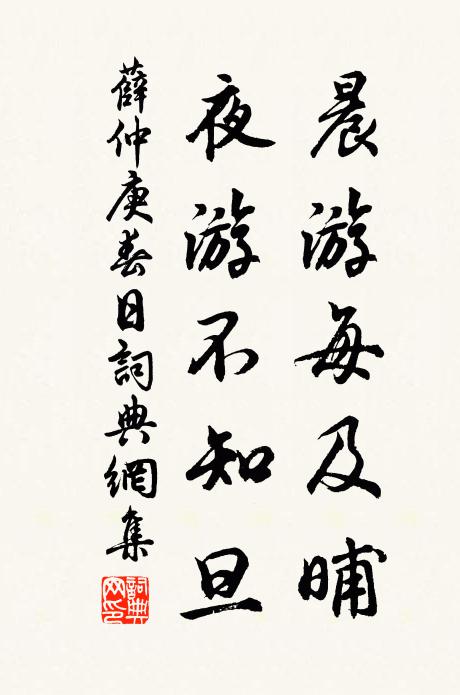 晨游每及晡
夜游不知旦
薛仲庚春日詞典網集
詞典网印